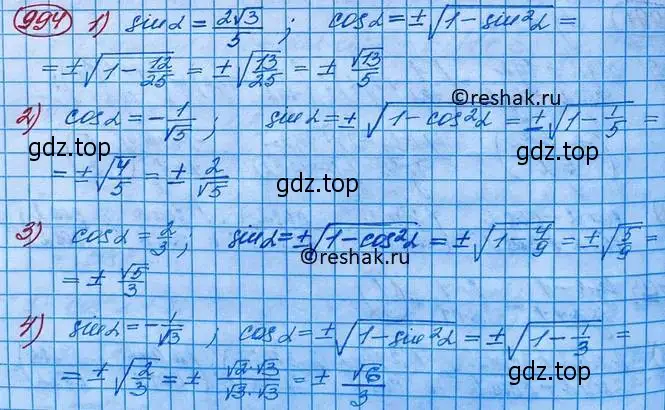 994 1) sin α = 2√3/5 ; cos α = ±√(1 - sin²α) =
= ±√(1 - 12/25) = ±√(13/25) = ± √13/5
©reshak.ru
2) cos α = -1/√5 ; sin α = ± √(1 - cos²α) = ±√(1 - 1/5) =
gdz.top gdz.top
= ±√(4/5) = ± 2/√5
gdz.top
3) cos α = 2/3 ; sin α = ±√(1 - cos²α) = ±√(1 - 4/9) = ±√(5/9) =
©reshak.ru
= ± √5/3
gdz.top
4) sin α = -1/√3 ; cos α = ±√(1 - sin²α) = ±√(1 - 1/3) =
= ±√(2/3) = ± √2·√3/√3·√3 = ± √6/3
gdz.top gdz.top